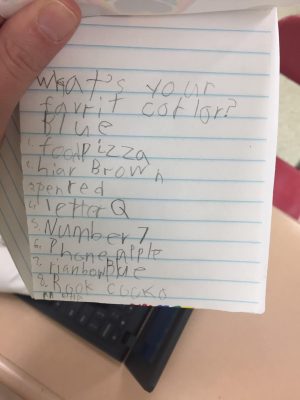 What's your
favrit corlor?
Blue
1. food Pizza
2. hiar Brown
3. pen red
4. letter Q
5. Number 7
6. Phone apple
7. rianbow Blue
8. Book cooko